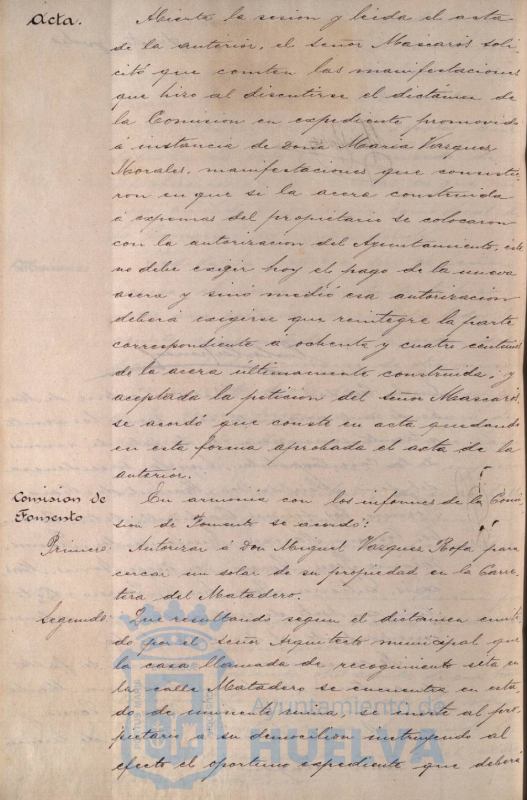 Acta.
Abierta la sesion y leida el acta
de la anterior, el señor Mascarós soli
citó que consten las manifestaciones
que hizo al discutirse el dictámen de
la Comision en expediente promovido
á instancia de Doña Maria Vazquez
Morales, manifestaciones que consistie
ron en que si la acera construida
á expensas del propietario se colocaron
con la autorizacion del Ayuntamiento, este
no debe exigir hoy el pago de la nueva
acera y sinó medió esa autorizacion
deberá exigirse que reintegre la parte
correspondiente á ochenta y cuatre céntimos
de la acera últimamente construida; y
aceptada la peticion del señor Mascarós
se acordó que conste en acta quedando
en esta forma aprobada el acta de la
anterior.
Comision de
Fomento
En armonia con los informes de la Comi
sion de Fomento se acordó:
Primero: Autorizar á Don Miguel Vazquez Rofa para
cercar un solar de su propiedad en la Carre
tera del Matadero.
Segundo: Que resultando segun el dictámen emiti
do por el señor Arquitecto municipal que
la casa llamada de recogimiento sita en
la calle Matadero se encuentra en esta
do de inminente ruina, se invite al pro
pietario á su demolicion instruyendo al
efecto el oportuno expediente que deberá
Ayuntamiento de
HUELVA